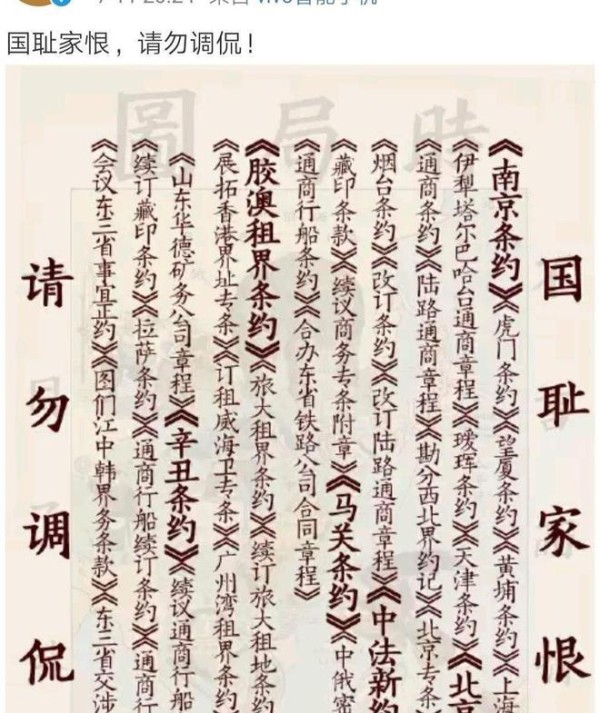 国耻家恨，请勿调侃！
時局圖
国耻家恨
《南京条约》《虎门条约》《望厦条约》《黄埔条约》《上海
《伊犁塔尔巴哈台通商章程》《瑷珲条约》《天津条约》《北京
《通商条约》《陆路通商章程》《勘分西北界约记》《北京专条
《烟台条约》《改订条约》《改订陆路通商章程》《中法新约
《藏印条款》《续议商务专条附章》《马关条约》《中俄密
《通商行船条约》《合办东省铁路公司合同章程》
《胶澳租界条约》《旅大租界条约》《续订旅大租地条约
《展拓香港界址专条》《订租威海卫专条》《广州湾租界条约
《山东华德矿务公司章程》《辛丑条约》《续议通商行船
《续订藏印条约》《拉萨条约》《通商行船续订条约》《通商行
《会议东三省事宜正约》《图们江中韩界务条款》《东三省交涉
请勿调侃